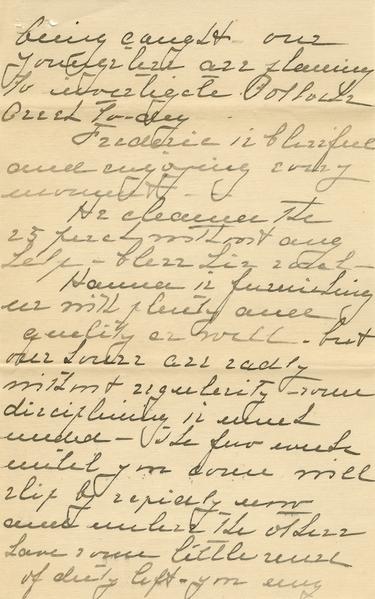 being caught. our
youngsters are planning
to investigate Possum
Creek to-day.
Frederic is blissful
and enjoying every
moment -
He cleaned the
25 perch without any
help - bless his soul -
Hanna is furnishing
us with plenty and
quality as well - but
our hours are sadly
without regularity - some
disciplining is much
needed - The few weeks
until you come will
slip by rapidly now
and unless the others
have some little sense
of duty left - you may